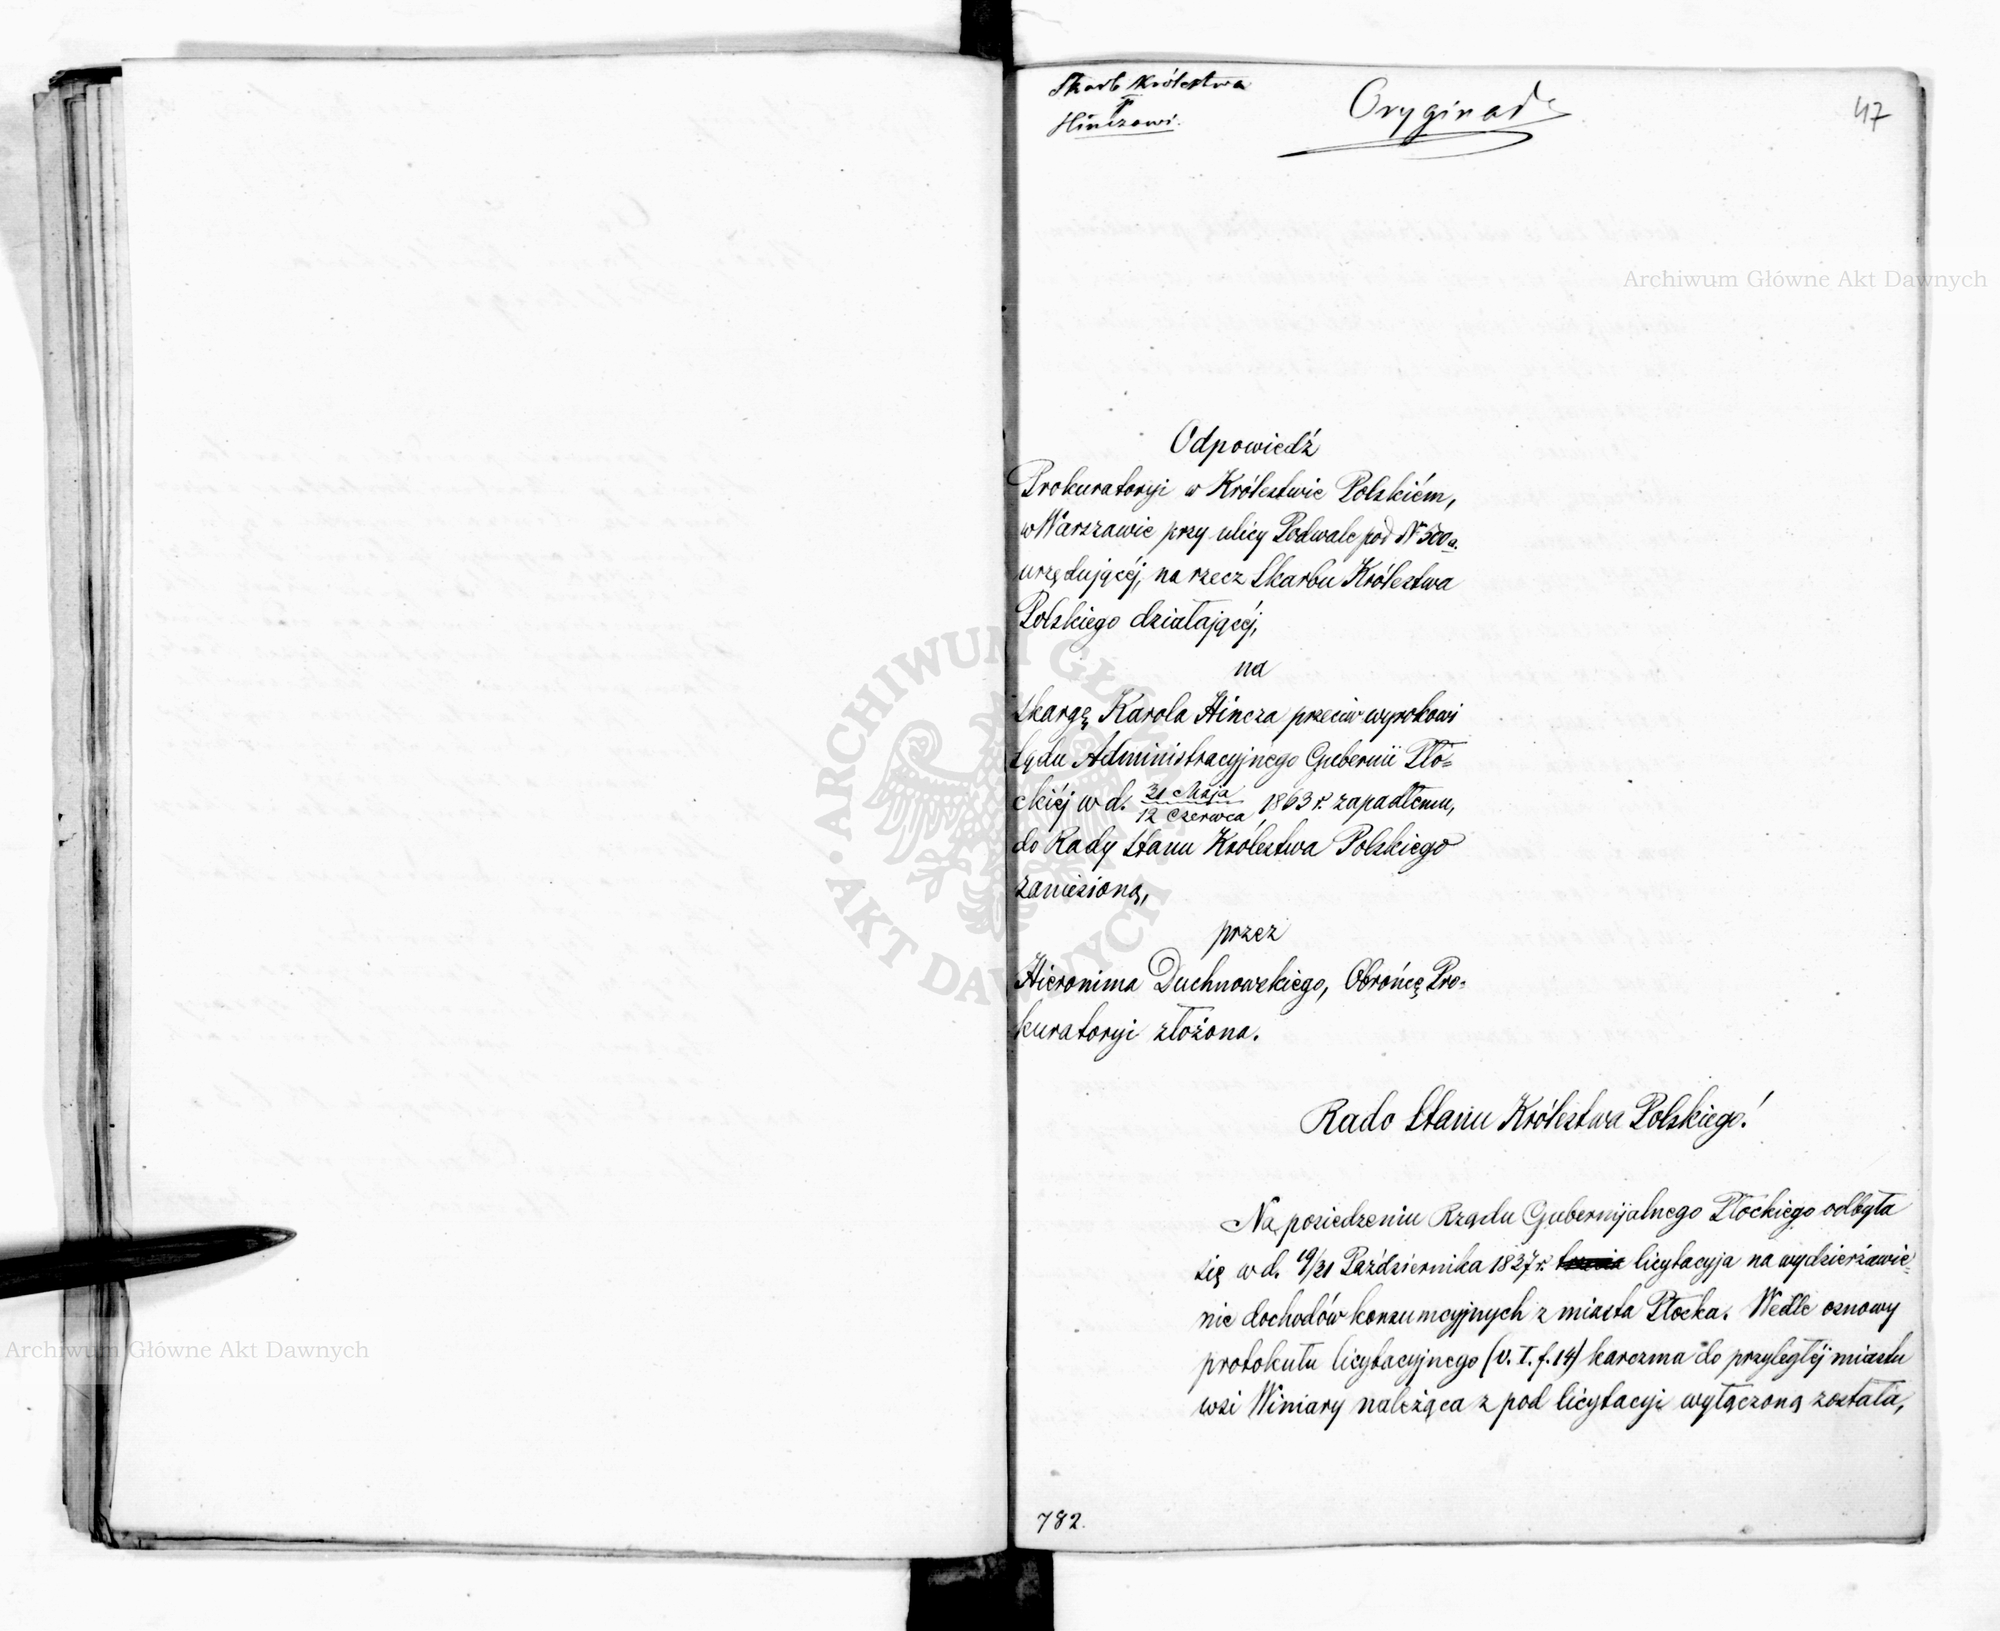 Skarb Królestwa
p
Hinczowi.
Oryginał
47
Odpowiedź
Prokuratoryi w Królestwie Polskiém,
w Warszawie przy ulicy Podwale pod Nº 500a.
urzędującéj, na rzecz Skarbu Królestwa
Polskiego działającéj,
na
Skargę Karola Hincza przeciw wyrokowi
Sądu Administracyjnego Gubernii Pło=
ckiéj w d. 31 Maja / 12 Czerwca 1863 r. zapadłemu,
do Rady Stanu Królestwa Polskiego
zaniesioną,
przez
Hieronima Duchnowskiego, Obrońcę Pro=
kuratoryi złożona.
Rado Stanu Królestwa Polskiego!
Na posiedzeniu Rządu Gubernijalnego Płockiego odbyła
się w d. 19/31 Października 1837 r. licytacyja na wydzierżawie=
nie dochodów konsumcyjnych z miasta Płocka. Wedle osnowy
protokułu licytacyjnego (v. I. f. 14) karczma do przyległéj miastu
wsi Winiary należąca z pod licytacyi wyłączoną została,
782.
Archiwum Główne Akt Dawnych
Archiwum Główne Akt Dawnych
ARCHIWUM GŁÓWNE AKT DAWNYCH